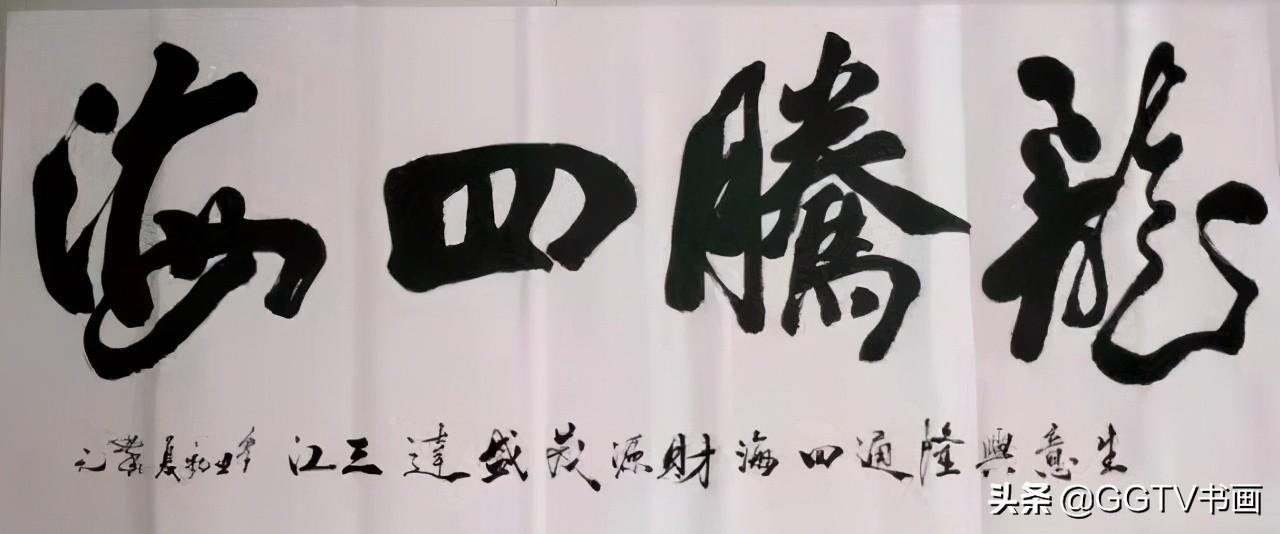 龍騰四海
生意興隆通四海財源茂盛達三江
头条 @GGTV书画